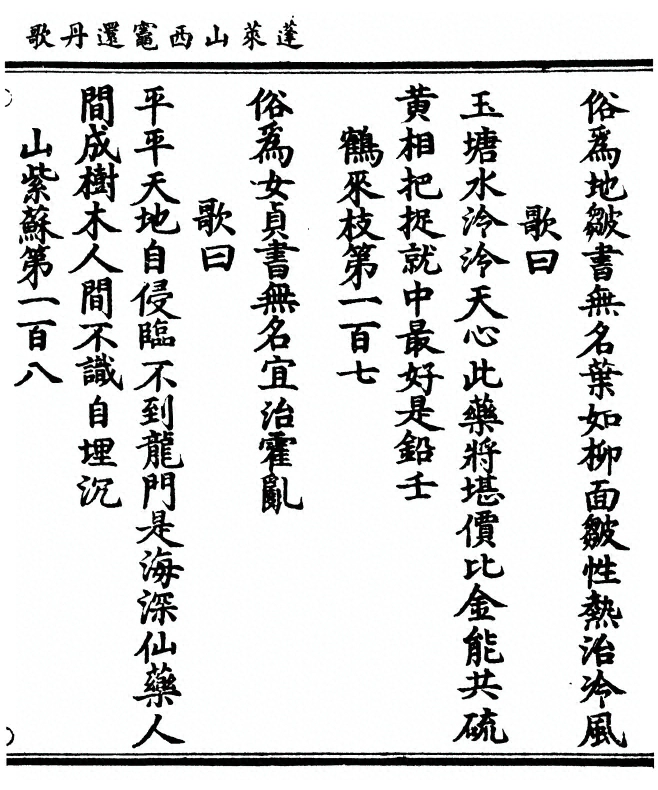 蓬萊山西竈還丹歌
俗爲地皺書無名葉如柳面皺性熱治冷風
歌曰
玉塘水泠泠天心此藥將堪價比金能共硫
黃相把捉就中最好是鉛壬
鶴來枝第一百七
俗爲女貞書無名宜治霍亂
歌曰
平平天地自侵臨不到龍門是海深仙藥人
間成樹木人間不識自埋沉
山紫蘇第一百八